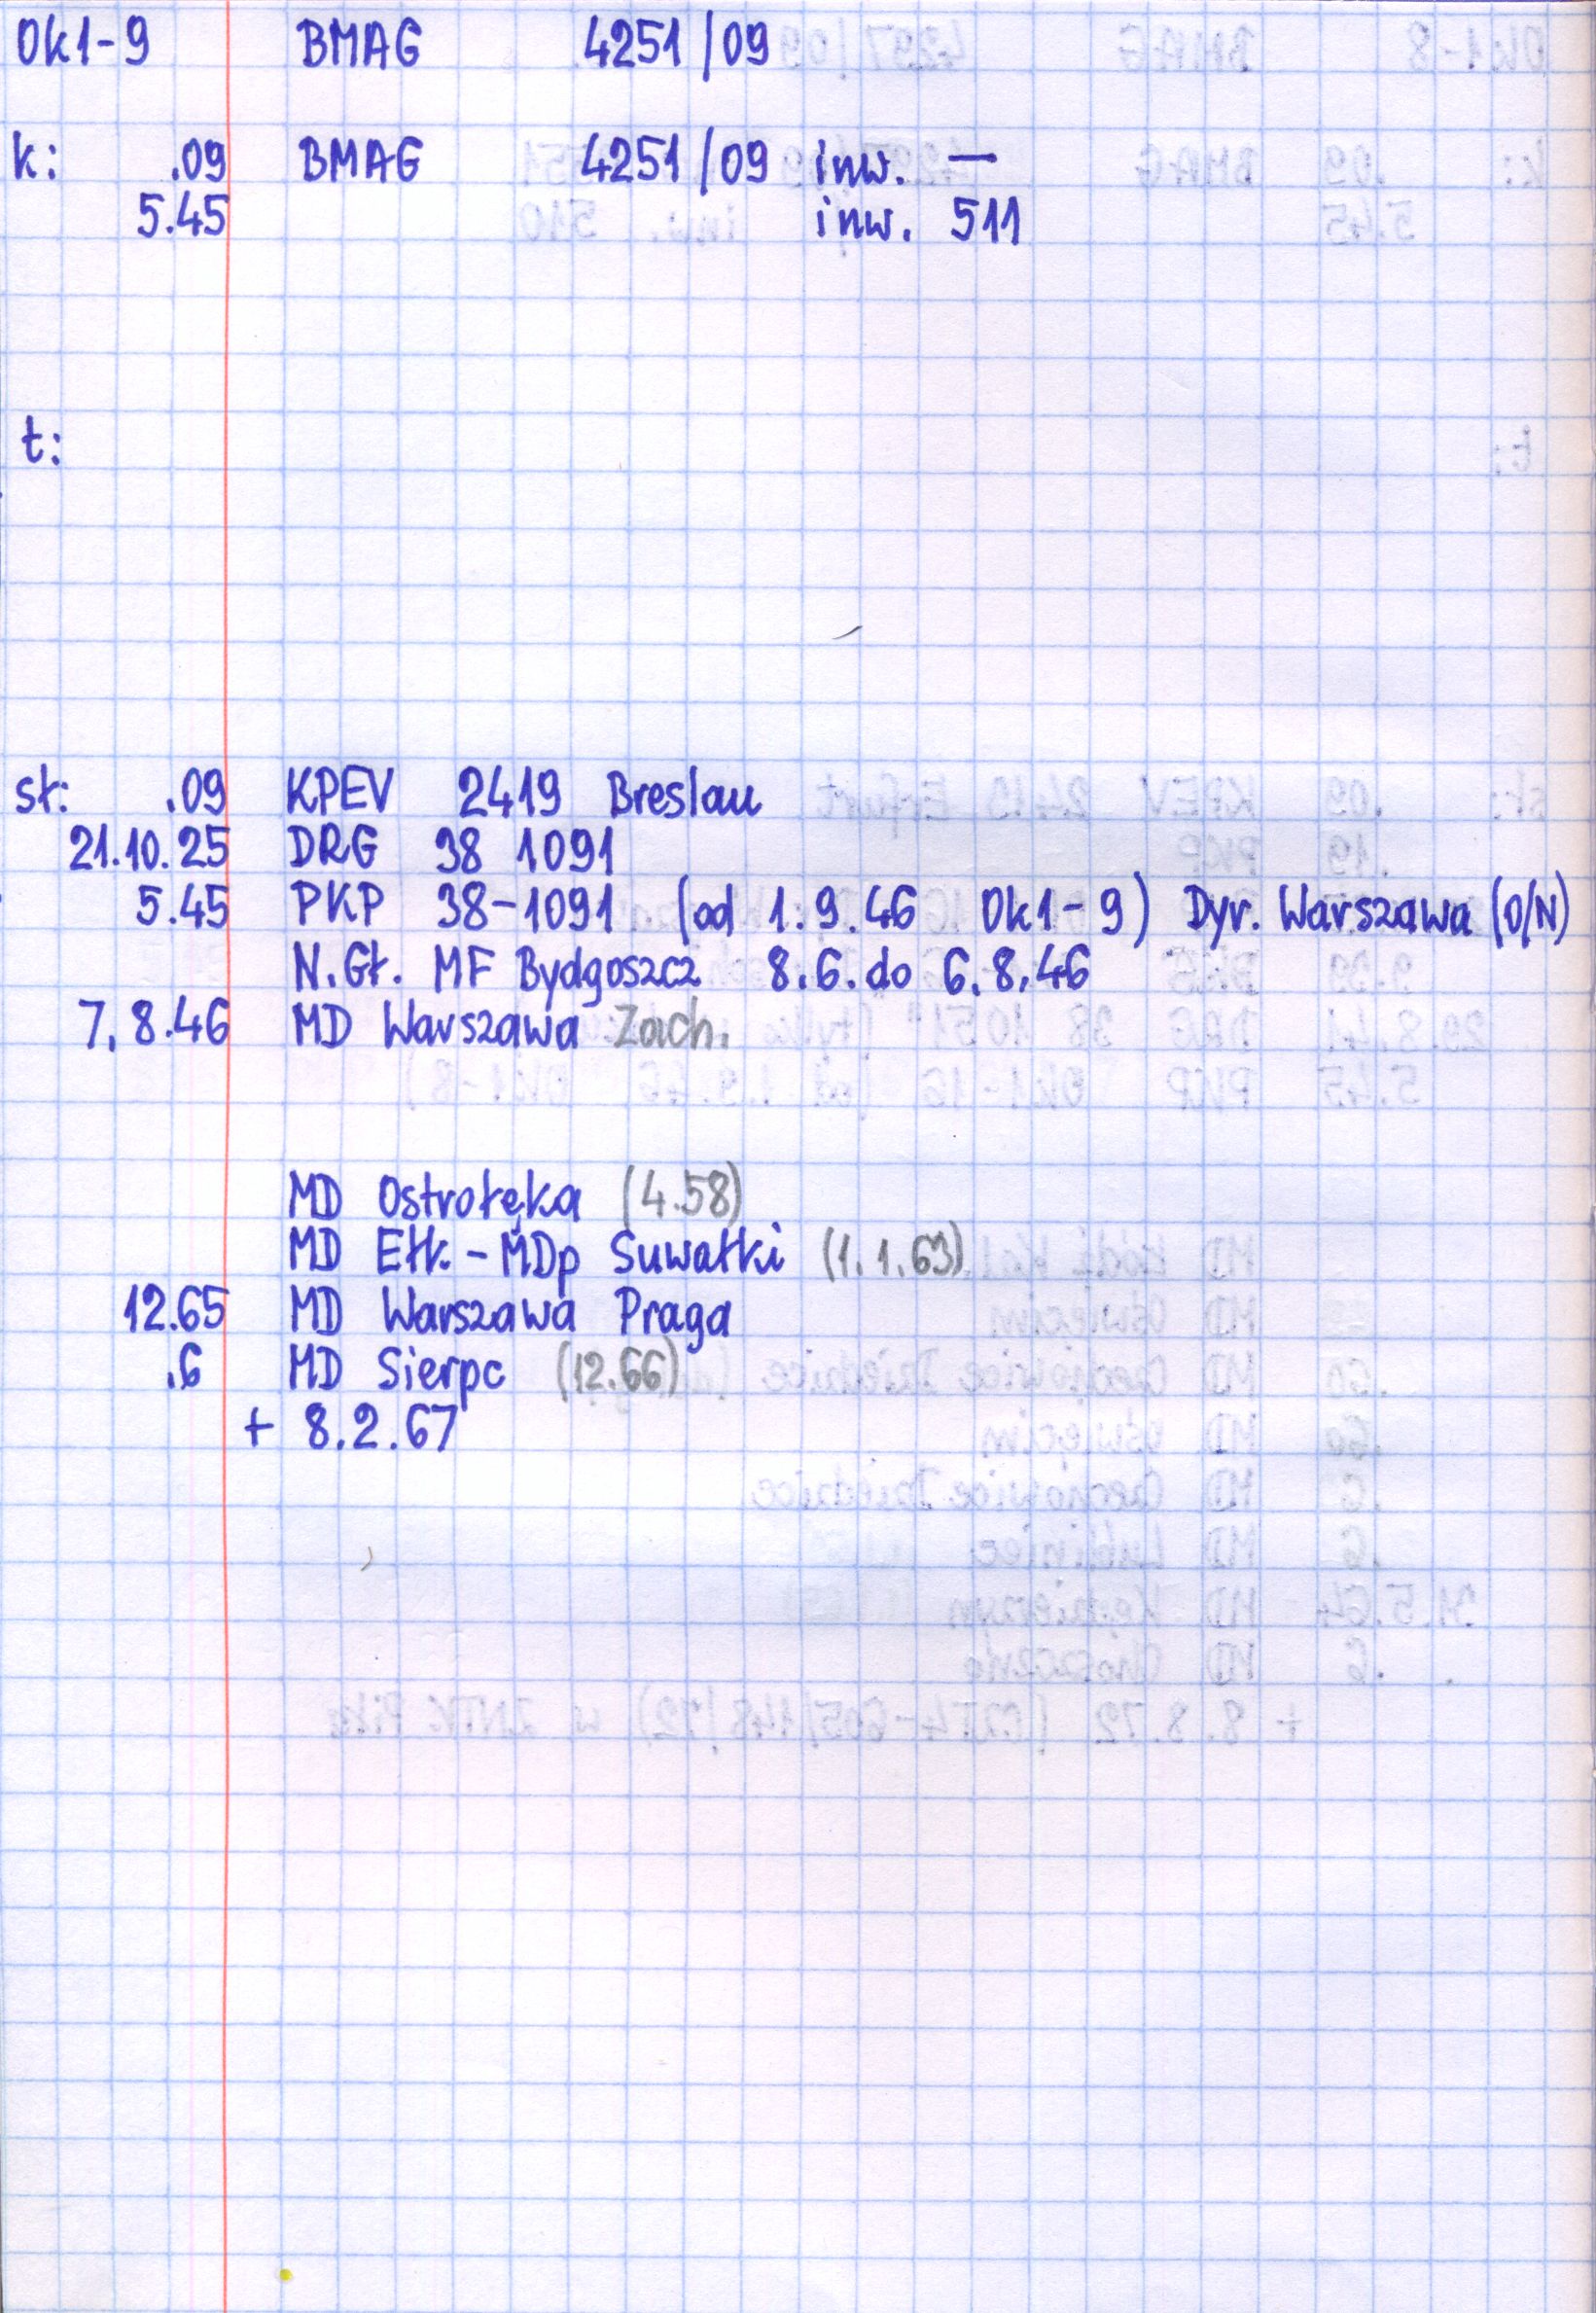 Ok1-9 BMAG 4251/09
k: .09 BMAG 4251/09 inw. —
5.45 inw. 511
t:
sł: .09 KPEV 2419 Breslau
21.10.25 DRG 38 1091
5.45 PKP 38-1091 (od 1.9.46 Ok1-9) Dyr. Warszawa (O/N)
N.Gł. MF Bydgoszcz 8.6. do 6.8.46
7.8.46 MD Warszawa Zach.
MD Ostrołęka (4.58)
MD Ełk - MDp Suwałki (1.1.63)
12.65 MD Warszawa Praga
.6 MD Sierpc (12.66)
+ 8.2.67